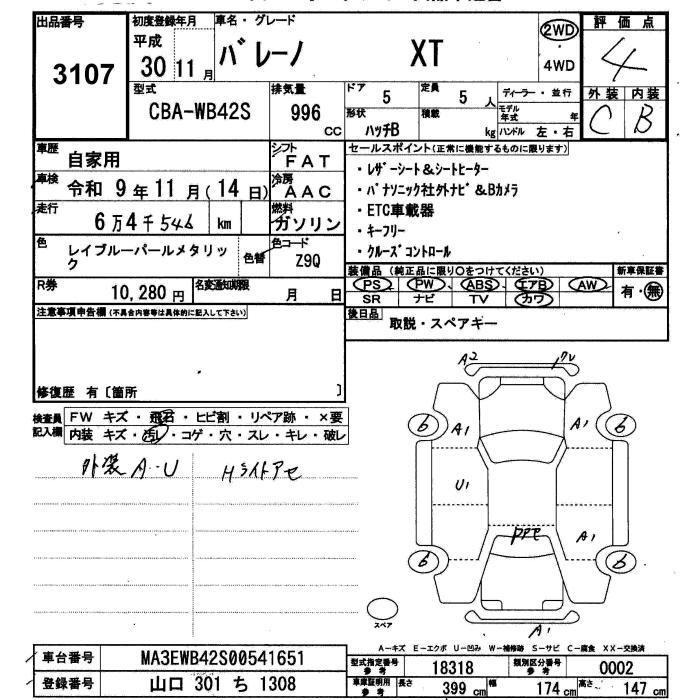 出品番号
3107
初度登録年月
平成
30 11 月
車名・グレード
バレーノ XT
2WD
・
4WD
評価点
4
外装 内装
C B
型式
CBA-WB42S
排気量
996
CC
ドア
5
定員
5 人
形状
ハッチB
積載
kg
ディーラー・並行
モデル年式 年
ハンドル 左・右
車歴
自家用
シフト
FAT
車検
令和 9 年 11 月 (14 日)
冷房
AAC
走行
6万4千546 km
燃料
ガソリン
色
レイブルーパールメタリック
色替
色コード
Z9Q
R券
10,280 円
名変通知期限
月 日
セールスポイント(正常に機能するものに限ります)
・レザーシート&シートヒーター
・パナソニック社外ナビ&Bカメラ
・ETC車載器
・キーフリー
・クルーズコントロール
装備品 (純正品に限り○をつけてください)
PS PW ABS エアB AW
SR ナビ TV カワ
新車保証書
有・無
後日品
取説・スペアキー
注意事項申告欄(不具合内容等は具体的に記入して下さい)
修復歴 有〔箇所 〕
検査員記入欄
FW キズ・飛石・ヒビ割・リペア跡・×要
内装 キズ・汚レ・コゲ・穴・スレ・キレ・破レ
外装 A・U
Hライトアセ
A2
6
A1
A1
6
U1
PPE
A1
6
6
スペア
A1
A-キズ E-エクボ U-凹み W-補修跡 S-サビ C-腐食 XX-交換済
車台番号
MA3EWB42S00541651
登録番号
山口 301 ち 1308
型式指定番号
参考
18318
類別区分番号
参考
0002
車庫証明用
参考
長さ
399 cm
幅
174 cm
高さ
147 cm